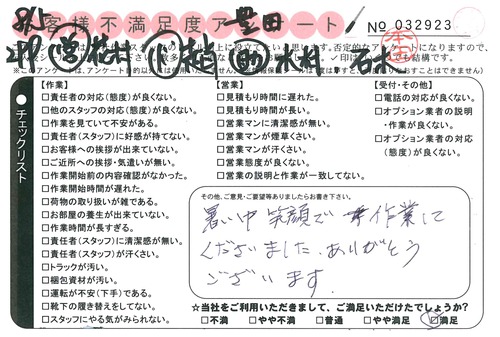 お客様不満足度アンケート!
豊田
No 032923
本社
【作業】
□責任者の対応(態度)が良くない。
□他のスタッフの対応(態度)が良くない。
□作業を見ていて不安がある。
□責任者(スタッフ)に好感が持てない。
□お客様への挨拶が出来ていない。
□ご近所への挨拶・気遣いが無い。
□作業開始前の内容確認がなかった。
□作業開始時間が遅れた。
□荷物の取り扱いが雑である。
□お部屋の養生が出来ていない。
□作業時間が長すぎる。
□責任者(スタッフ)に清潔感が無い。
□責任者(スタッフ)が汗くさい。
□トラックが汚い。
□梱包資材が汚い。
□運転が不安(下手)である。
□靴下の履き替えをしてない。
□スタッフにやる気がみられない。
【営業】
□見積もり時間に遅れた。
□見積もり時間が長い。
□営業マンに清潔感が無い。
□営業マンが煙草くさい。
□営業マンが汗くさい。
□営業態度が良くない。
□営業の説明と作業が一致してない。
【受付・その他】
□電話の対応が良くない。
□オプション業者の説明
・作業が良くない。
□オプション業者の対応
(態度)が良くない。
チェックリスト
その他、ご意見・ご要望等ありましたらお書き下さい。
暑い中 笑顔で 作業して
くださいました。ありがとう
ございます。
☆当社をご利用いただきまして、ご満足いただけたでしょうか?
□不満 □やや不満 □普通 □やや満足 □満足